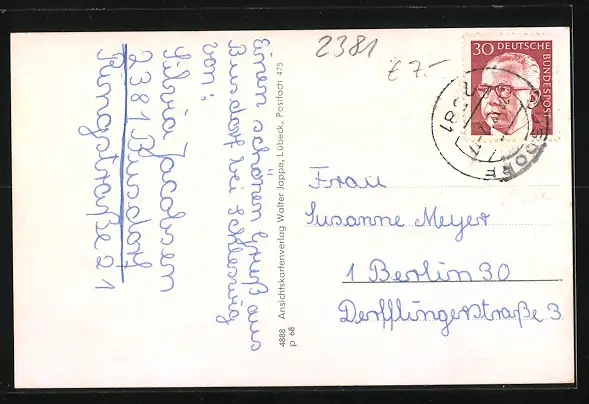 2381
€ 7.-
30 DEUTSCHE
BUNDESPOST
Einen schönen Gruß aus
Busdorf bei Schleswig
von:
Silvia Jacobsen
2381 Busdorf
Ringstraße 21
4888 Ansichtskartenverlag Walter Jappe, Lübeck, Postfach 475
p 68
Frau
Susanne Meyer
1 Berlin 30
Derfflingerstraße 3